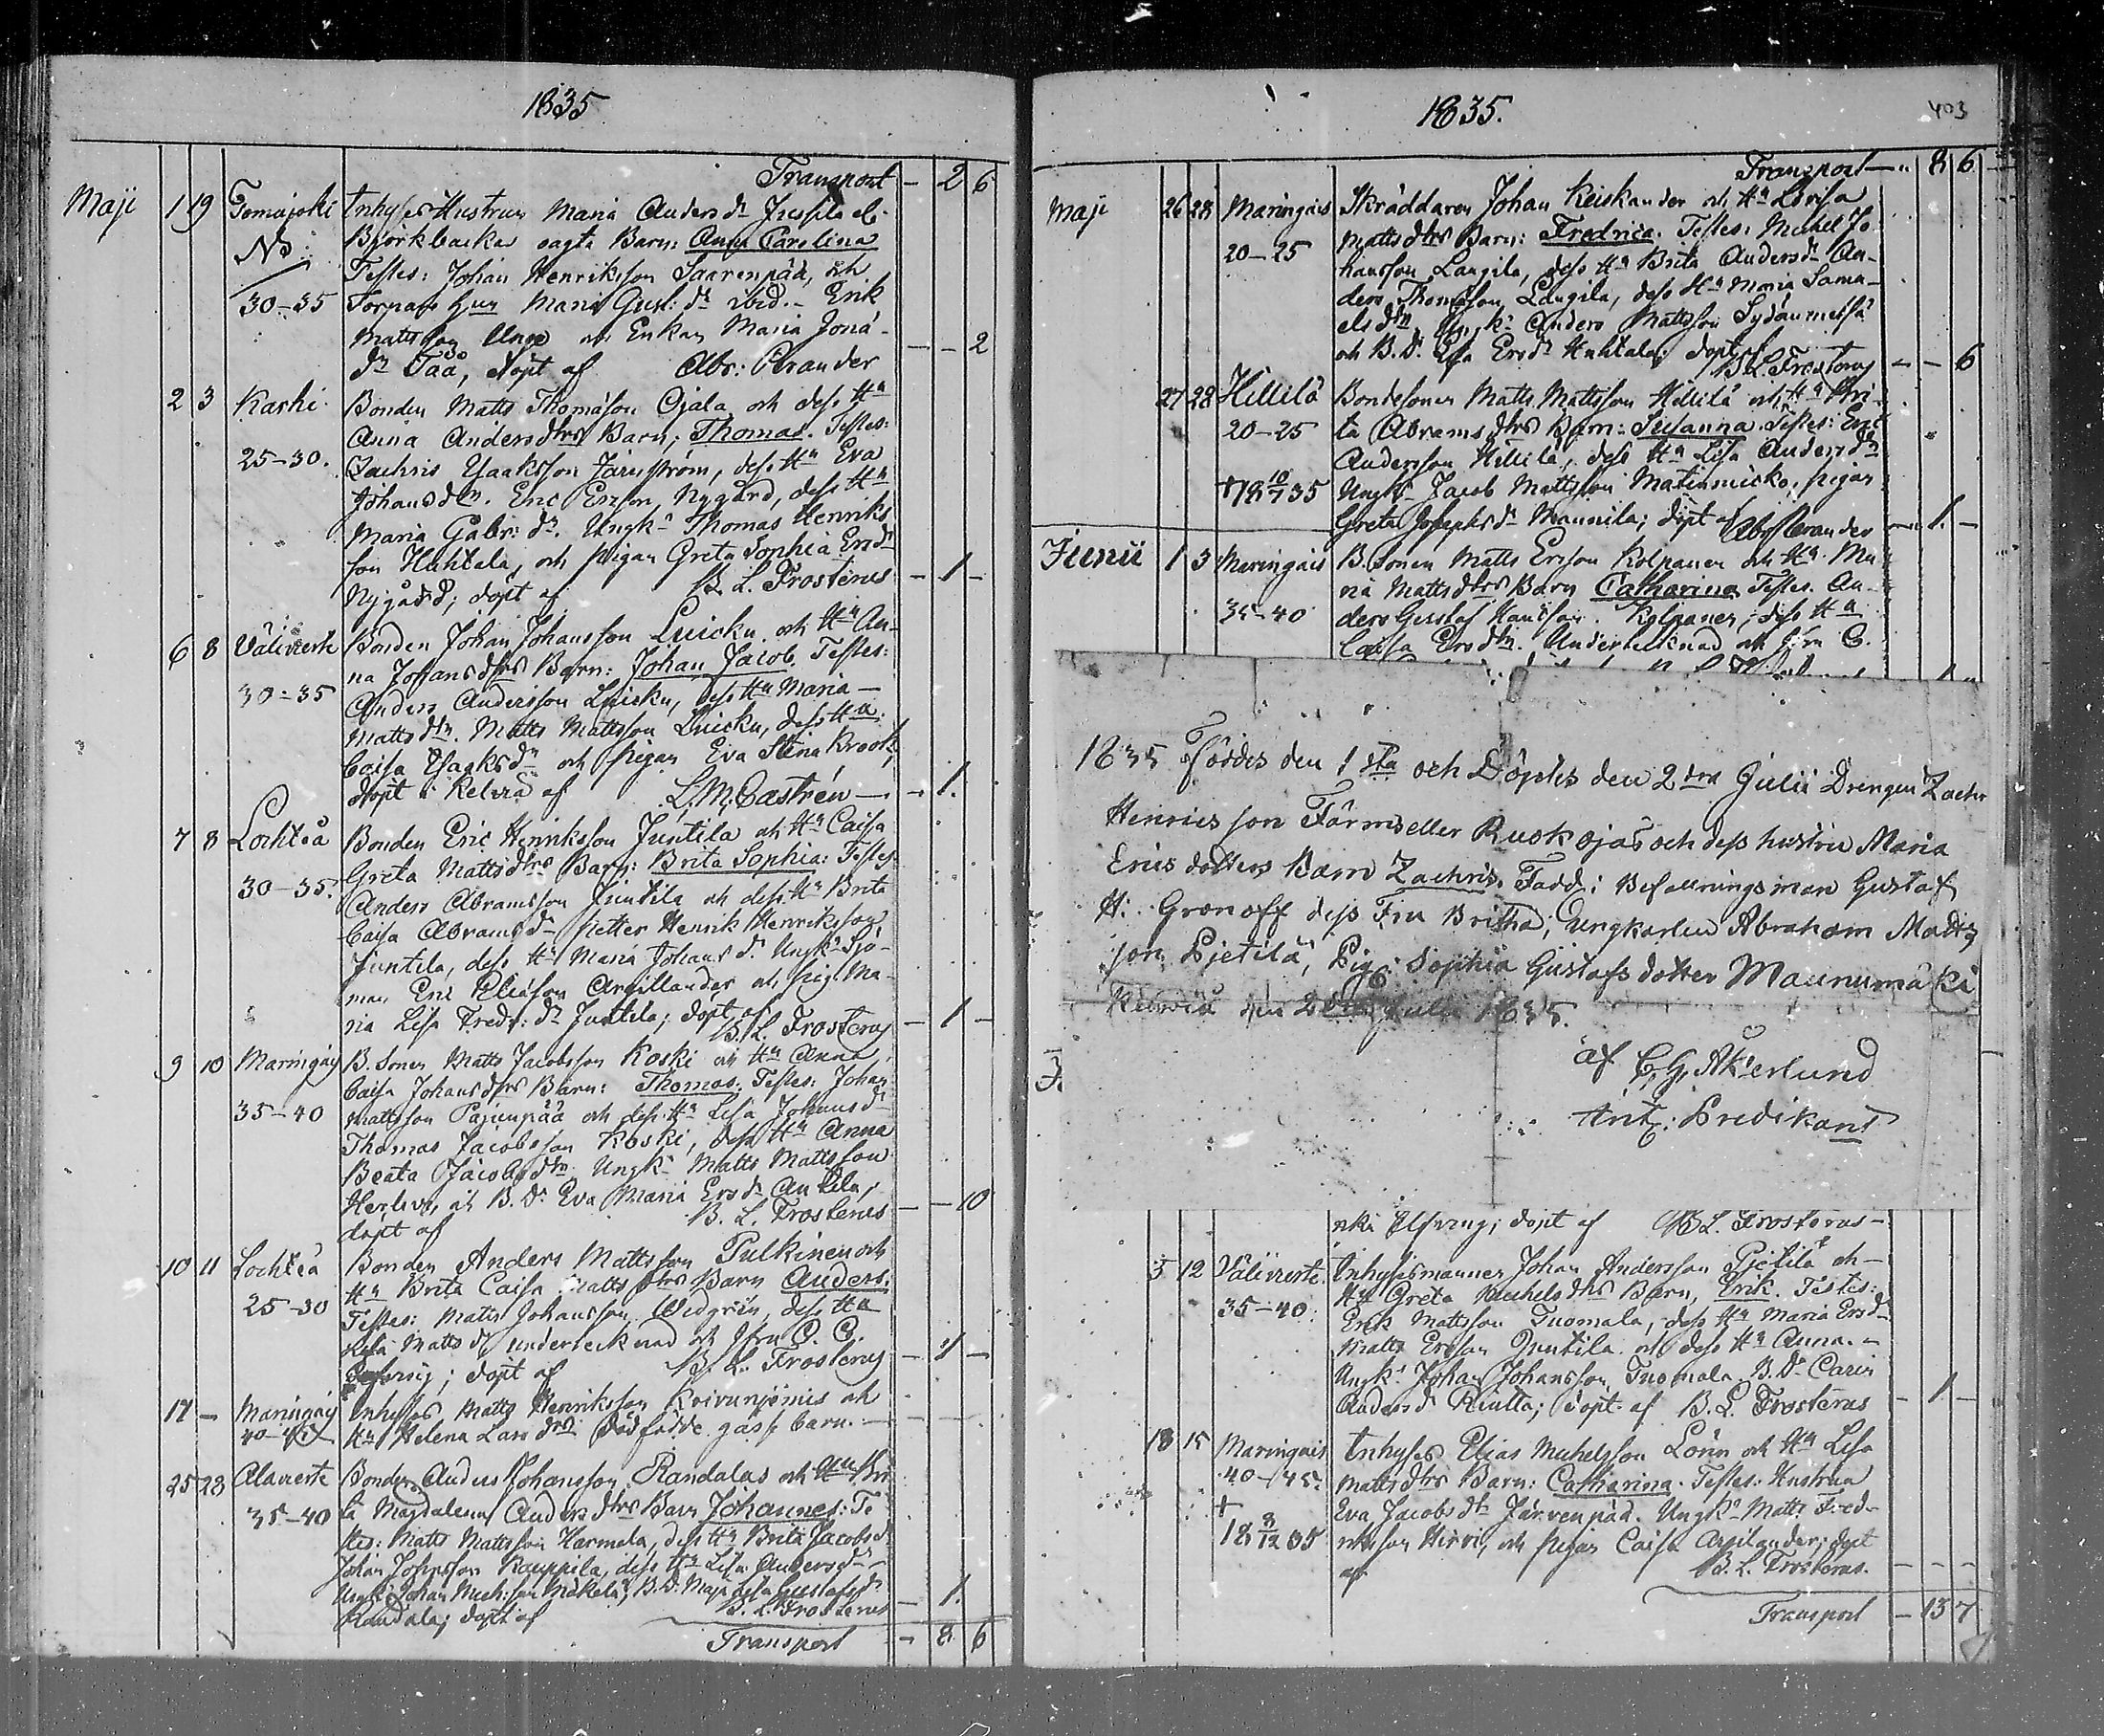 1835
Transport — 2 6
Maji 1 19 Tomujoki Inhyses Hustrun Maria Andersdr Jussila el.
No: Björkbacka oägta Barn: Anna Carolina
Testes: Johan Henriksson Saarenpää, och
30-35 Torpare Maria Gust: dr ibid. Erik
Mattsson och Enkan Maria Jona-
dr Tää, döpt af Abr: Cerander — — 2
2 3 Karhi Bonden Matts Thomasson Ojala och dess Hu
Anna Andersdtrs Barn; Thomas. Testes:
25-30. Zachris Isaaksson Järnström, dess Hu Eva
Johansdtr. Eric Ersson Nygård, dess Hu
Maria Gabr: dr. Ungk: Thomas Henriks
son Huhtala, och pigan Greta Sophia Ersdr
Nygård; döpt af B. L. Frosterus — 1 —
6 8 Väliwierte Bonden Johan Johansson Luicku och Hu An-
na Johansdtrs Barn: Johan Jacob. Testes:
30-35 Anders Andersson Luicku, dess Hu Maria
Mattsdtr. Matts Mattsson Luicku, dess Hu
Caisa Isaksdr och pigan Eva Stina Krook;
döpt i Kelviå af L. M. Castrén — — 1.
7 8 Lochteå Bonden Eric Henriksson Juntila och Hu Caisa
Greta Mattsdtrs Barn: Brita Sophia: Testes
30-35. Anders Abramsson Juntila och dess Hu Brita
Caisa Abramsdr Petter Henrik Henriksson
Juntila, dess Hu Maria Johansdr Ungk: Sjö-
man Eric Eliasson Argillander och pig. Ma-
ria Lisa Fredr: dr Juntila; döpt af
B. L. Frosterus — 1 —
9 10 Maringais B. Sonen Matts Jacobsson Koski och Hu Anna
Caisa Johansdtrs Barn: Thomas. Testes: Johan
35-40 Mattsson Pajunpää och dess Hu Lisa Johansdr
Thomas Jacobsson Koski, dess Hu Anna
Beata Jacobsdtr. Ungk: Matts Mattsson
och B. Dr Eva Maria Ersdr Antila;
döpt af B. L. Frosterus — — 10
10 11 Lochteå Bonden Anders Mattsson Pulkinen och
Hu Brita Caisa Mattsdtrs Barn Anders.
25-30 Testes: Matts Johansson Widgrén, dess Hu
Lisa Mattsdr undertecknad och Jfru C. C.
Elfving; döpt af B. L. Frosterus — 1 —
17 — Maringais Inhyses Matts Henriksson Koivuniemis och
Hu Helena Larsdtrs dödfödde gosse barn. —
25 28 Alawierte Bonden Anders Johansson Randalas och Hu Bri
35-40 ta Magdalena Andersdtrs Barn Johannes: Te
stes: Matts Mattsson Harmala, dess Hu Brita Jacobsdr
Johan Josephsson Kauppila, dess Hu Lisa Andersdr
Ungk: Johan Mich:son Mäkelä, B. Dr Maja Lisa Gustafsdr
Randala; döpt af B. L. Frosterus — 1.
Transport — 8 6
1835. 403
Transport — 8 6
Maji 26 28 Maringais Skräddaren Johan Keiskander och Hu Lovisa
Mattsdtrs Barn: Fredrica. Testes: Mickel Jo
20-25 hansson Laugila, dess Hu Brita Andersdr An-
ders Thomasson Laugila, dess Hu Maria Samu-
elsdtr, Ungk: Anders Mattsson Sydänmetsä
och B. Dr Lisa Ersdr Huhtala; döpt af
B. L. Frosterus — — 6
27 28 Hillilä Bondesonen Matts Mattsson Hillilä och Hu Bri-
20-25 ta Abramsdtrs Barn: Susanna. Testes: Eric
Andersson Hillilä, dess Hu Lisa Andersdr
+18 10/7 35 Ungk: Jacob Mattsson, pigan
Greta Josephsdr Maunila; döpt af Abr Cerander — 1. —
Junii 1 3 Maringais B. Sonen Matts Ersson Kolpanen och Hu Ma
ria Mattsdtrs Barn Catharina Testes. An-
35-40 ders Gustaf Hansson Kolpanen; dess Hu
Caisa Ersdtr. Undertecknad och Jfru C.
1835 Föddes den 1 sta och Döptes den 2 dra Julii Drengen Zachr
Henricsson Färms eller Ruokojas och dess hustru Maria
Erics dotters Barn Zachris. Fadd: Befallningsman Gustaf
H: Gronoff dess Fru Britha; Ungkarlen Abraham Matts
son Pjetilä, Pig: Sophia Gustafs dotter Maunumäki
Kelviå den 2 Julii 1835.
af C. G. Åkerlund
Ant: Predikant
Elfving; döpt af B. L. Frosterus —
5 12 Väliwierte Inhysesmannen Johan Andersson Pjetilä och
Hu Greta Michelsdtrs Barn, Erik. Testes:
35-40. Erik Mattsson Tuomala, dess Hu Maria Ersdr
Matts Ersson Juntila och dess Hu Anna. —
Ungk: Johan Johansson Tuomala B. Dr Carin
Andersdr Riutta; döpt af B. L. Frosterus — 1 —
13 15 Maringais Inhyses Elias Michelsson Lönn och Hu Lisa
40-45. Mattsdtrs Barn: Catharina. Testes: Hustrun
+ Eva Jacobsdr Järvenpää. Ungk: Matts Fred-
18 8/12 35 riksson Hirvi, och pigan Caisa Argilander; döpt
af B. L. Frosterus. — — —
Transport — 13 7